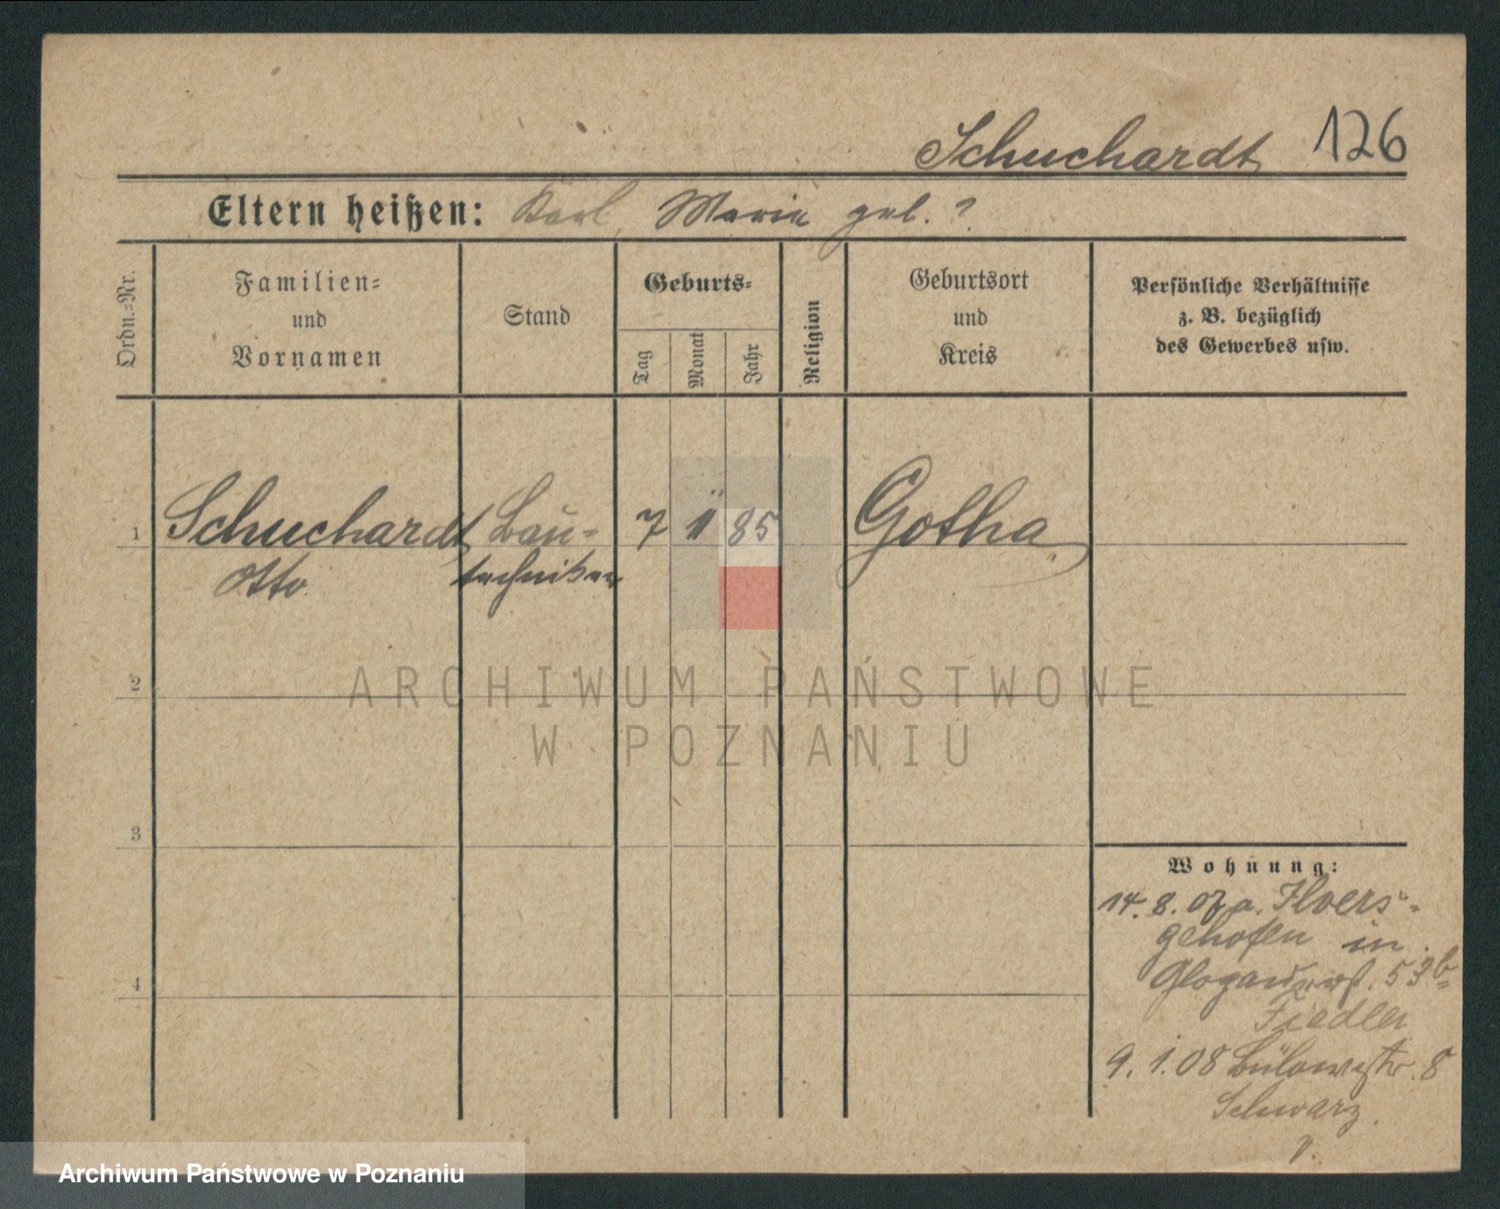 Schuchardt 126
Eltern heißen: Karl, Marie geb. ?
Ordn.=Nr.
Familien=
und
Vornamen
Stand
Geburts=
Tag
Monat
Jahr
Religion
Geburtsort
und
Kreis
Persönliche Verhältnisse
z. B. bezüglich
des Gewerbes usw.
1 Schuchardt Bau- 7 11 85 Gotha
Otto. techniker
2
3
4
Wohnung:
14. 8. 07 a. Ilvers-
gehofen in
Glogauerst. 53b
Fiedler
9. 1. 08 Bülowstr. 8
Schwarz.
ARCHIWUM PAŃSTWOWE
W POZNANIU
Archiwum Państwowe w Poznaniu